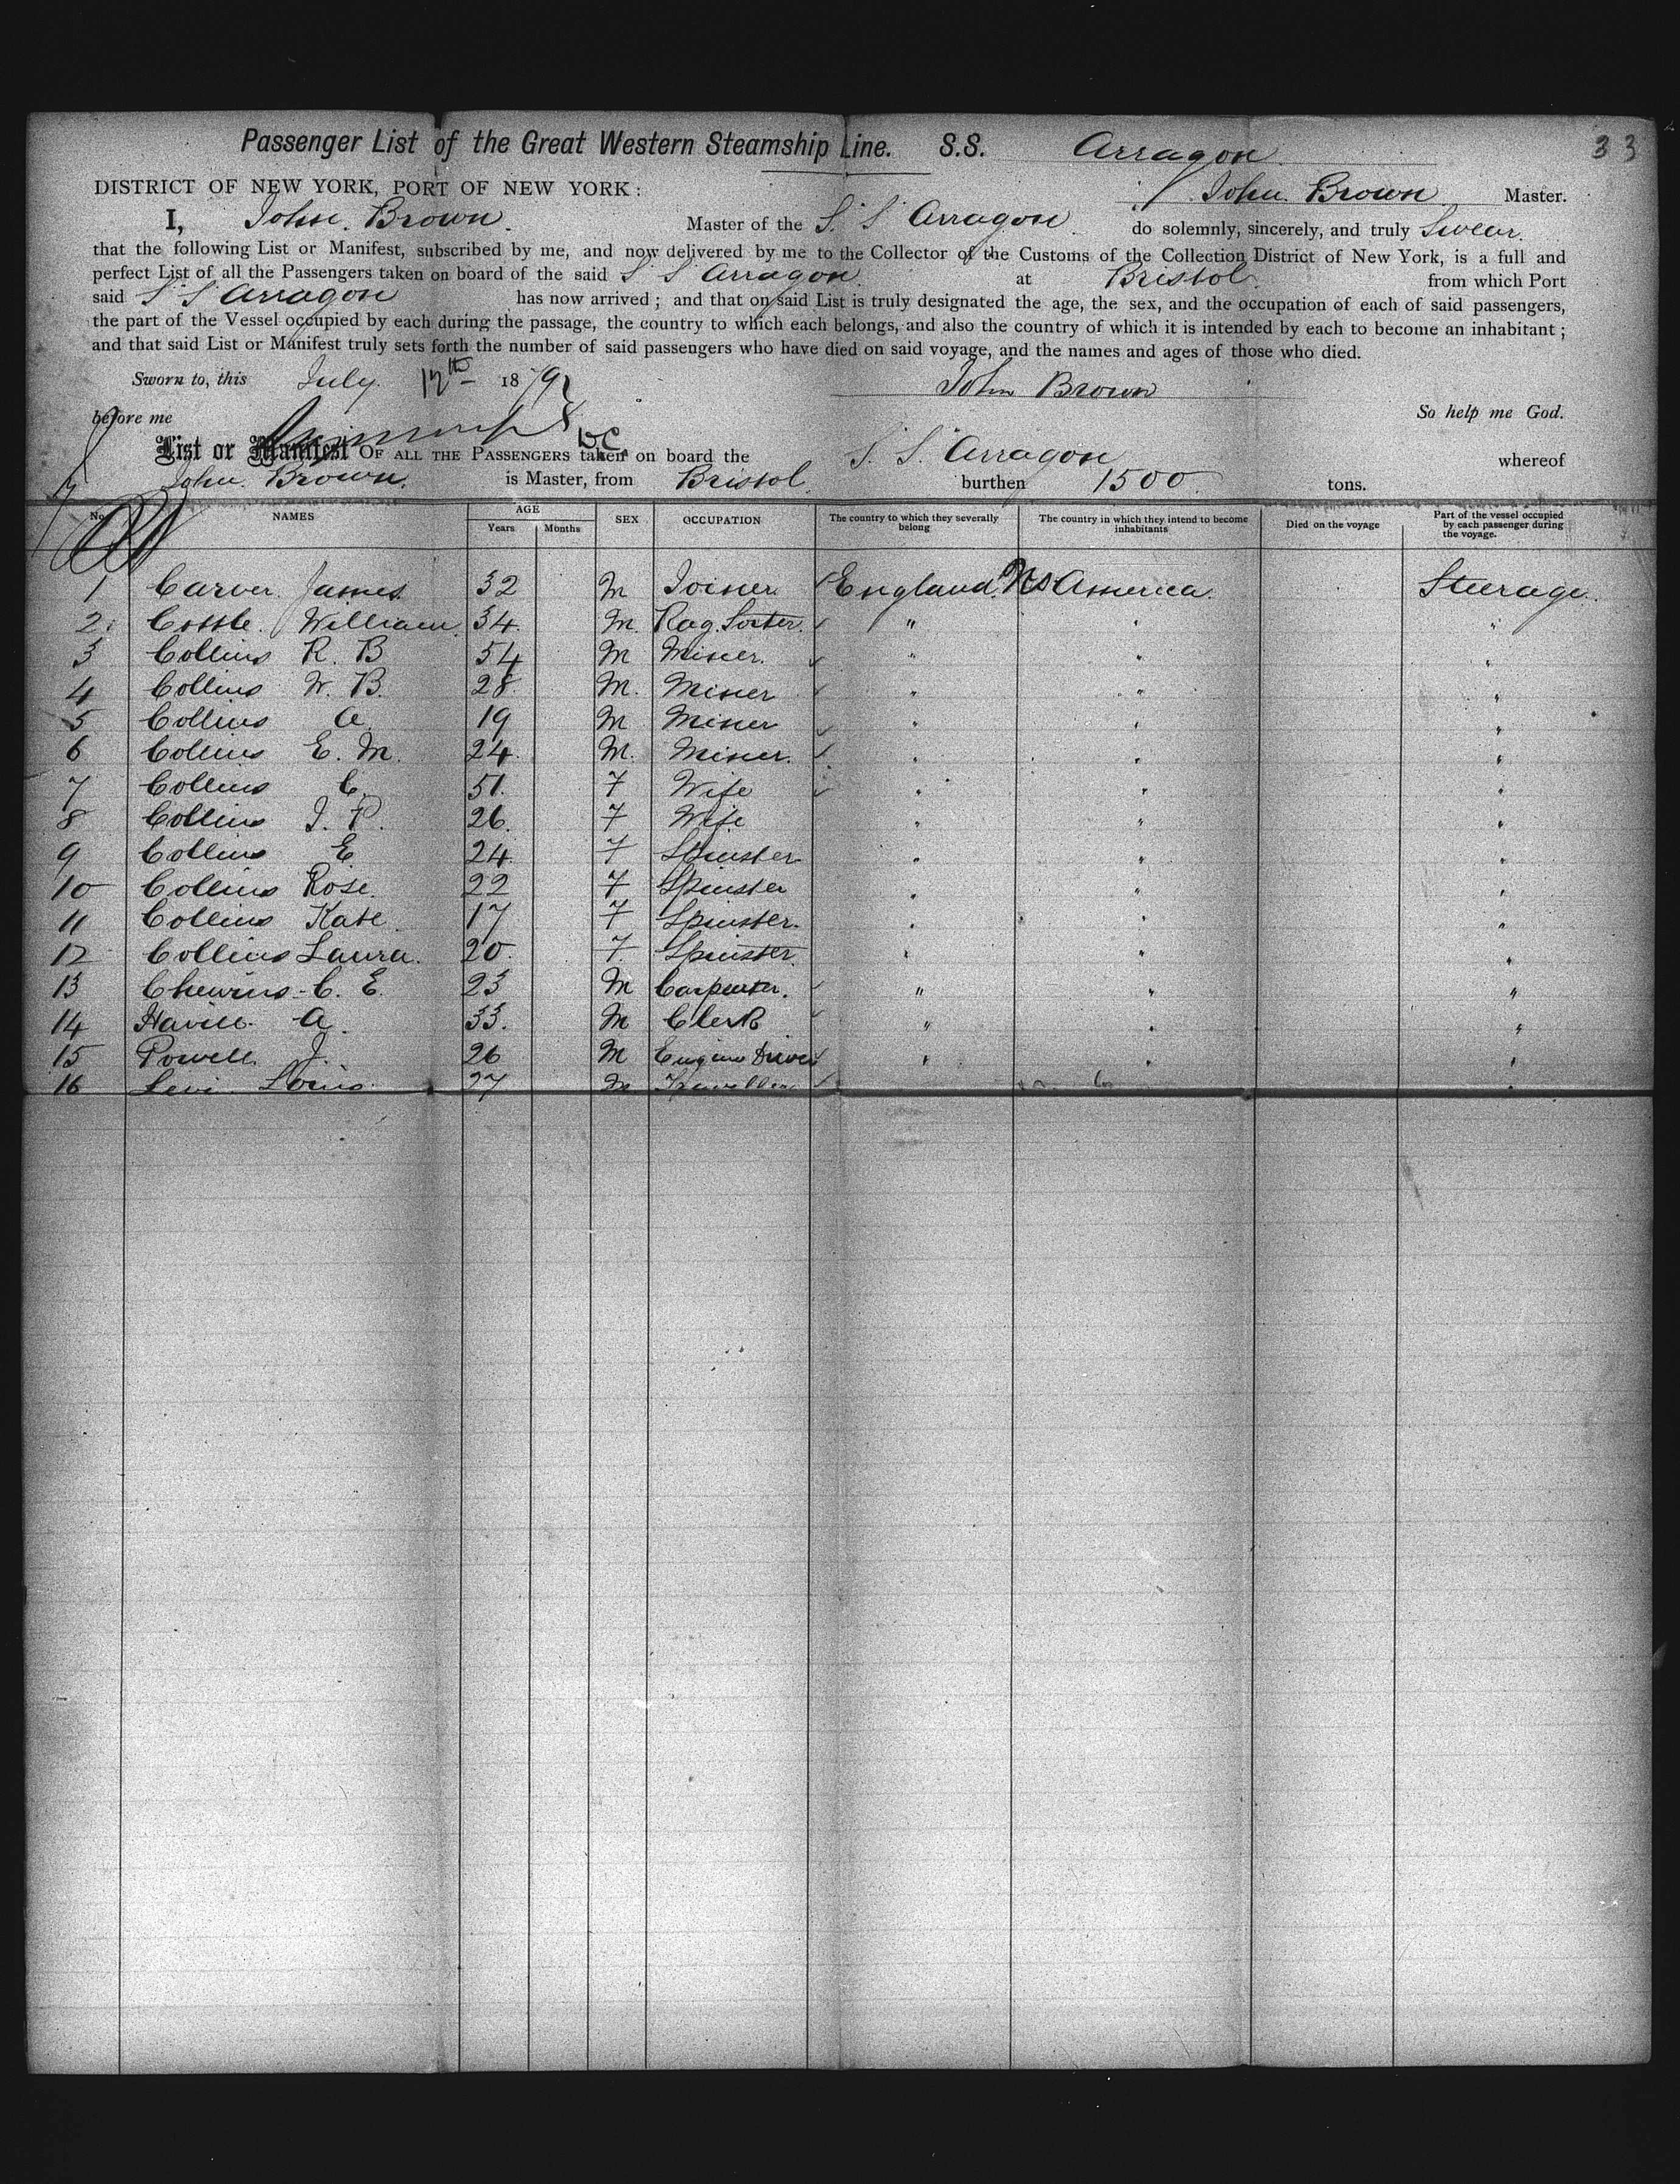 Passenger List of the Great Western Steamship Line. S.S. Arragon 33
DISTRICT OF NEW YORK, PORT OF NEW YORK: John Brown Master.
I, John Brown. Master of the S. S. Arragon do solemnly, sincerely, and truly Swear.
that the following List or Manifest, subscribed by me, and now delivered by me to the Collector of the Customs of the Collection District of New York, is a full and
perfect List of all the Passengers taken on board of the said S S Arragon at Bristol from which Port
said S S Arragon has now arrived; and that on said List is truly designated the age, the sex, and the occupation of each of said passengers,
the part of the Vessel occupied by each during the passage, the country to which each belongs, and also the country of which it is intended by each to become an inhabitant;
and that said List or Manifest truly sets forth the number of said passengers who have died on said voyage, and the names and ages of those who died.
Sworn to, this July 12th 1879 John Brown
before me So help me God.
List or Manifest OF ALL THE PASSENGERS taken on board the S. S. Arragon whereof
John Brown. is Master, from Bristol burthen 1500 tons.
No. NAMES AGE Years Months SEX OCCUPATION The country to which they severally belong The country in which they intend to become inhabitants Died on the voyage Part of the vessel occupied by each passenger during the voyage.
1 Carver James 32 M Joiner England. America. Steerage.
2 William 34 M. Rag Sorter " " "
3 Collins R. B 54 M Miner. " " "
4 Collins W. B. 28 M. Miner " " "
5 Collins A 19 M Miner " " "
6 Collins E. M. 24 M. Miner. " " "
7 Collins C. 51. F Wife " " "
8 Collins J. P. 26. F Wife " " "
9 Collins E 24 F Spinster " " "
10 Collins Rose 22 F Spinster " " "
11 Collins Kate 17 F Spinster. " " "
12 Collins Laura. 20 F. Spinster. " " "
13 C. E. 23 M Carpenter. " " "
14 A. 33. M Clerk " " "
15 Powell J. 26 M Engine Driver " " "
16 Levi Louis 27 M Traveller " "